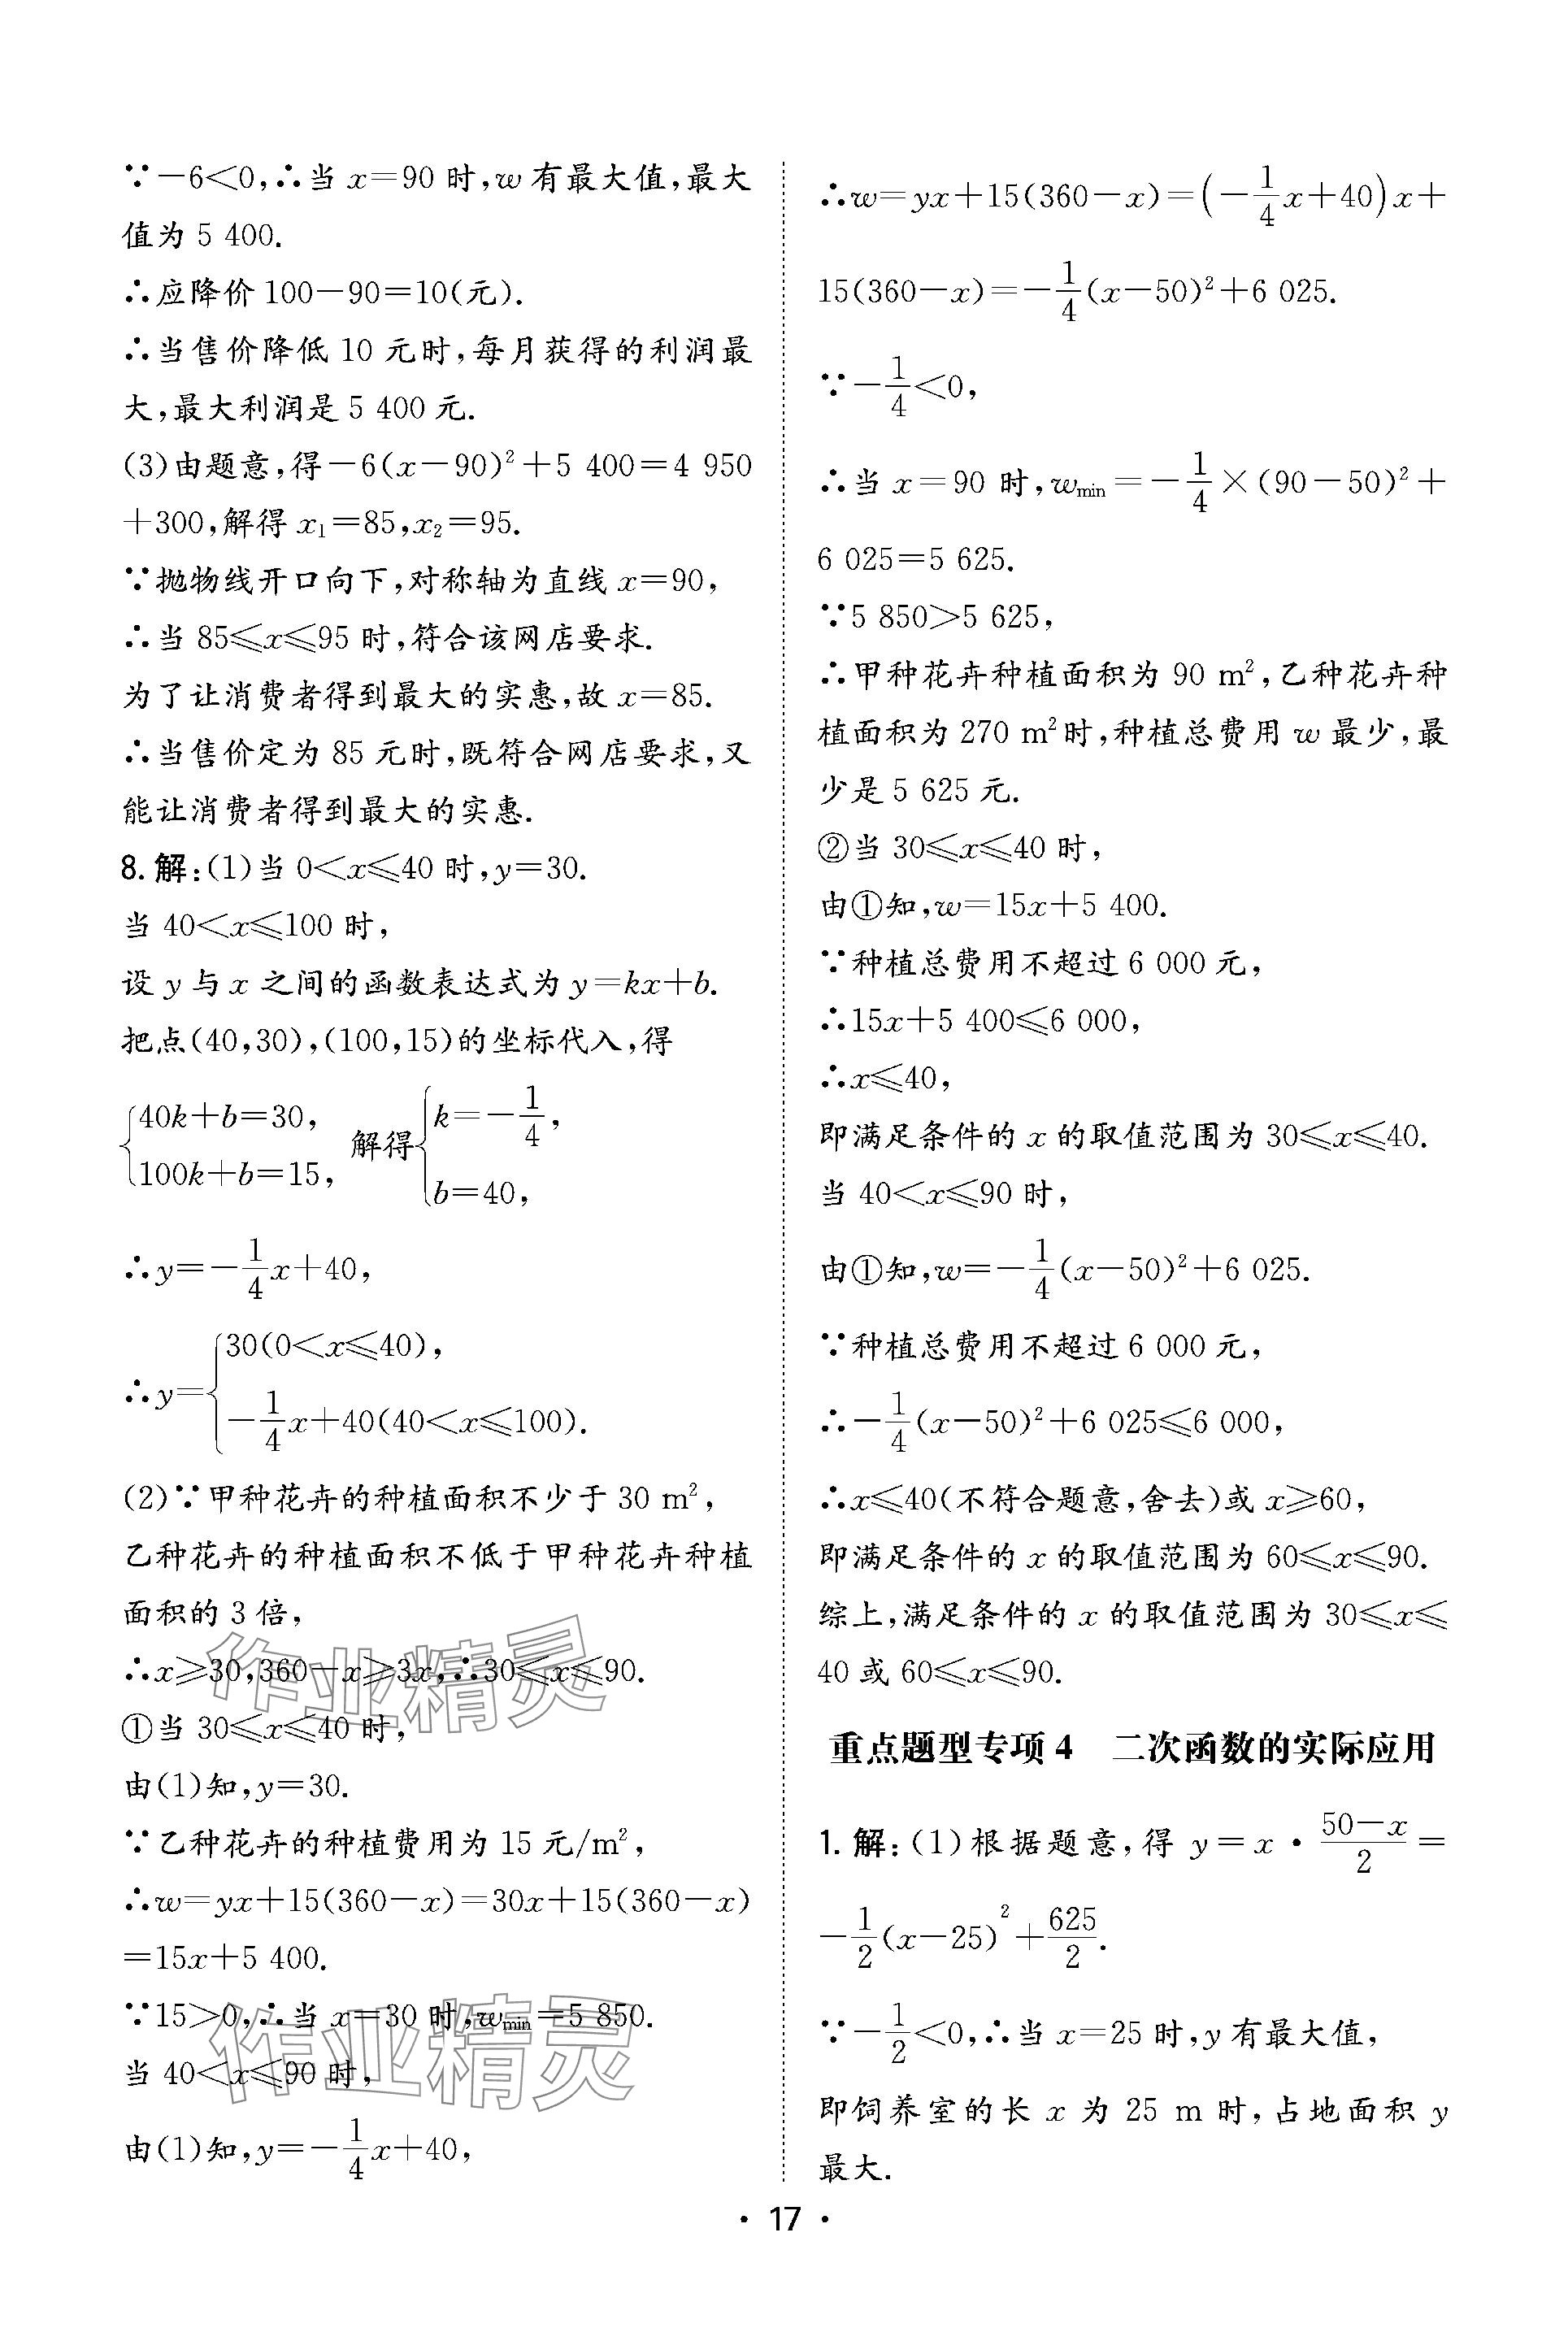 ∵-6<0,∴当 x=90 时,w 有最大值,最大
值为 5 400.
∴应降价 100-90=10(元).
∴当售价降低 10 元时,每月获得的利润最
大,最大利润是 5 400 元.
(3)由题意,得-6(x-90)²+5 400=4 950
+300,解得 x₁=85,x₂=95.
∵抛物线开口向下,对称轴为直线 x=90,
∴当 85≤x≤95 时,符合该网店要求.
为了让消费者得到最大的实惠,故 x=85.
∴当售价定为 85 元时,既符合网店要求,又
能让消费者得到最大的实惠.
8. 解:(1)当 0<x≤40 时,y=30.
当 40<x≤100 时,
设 y 与 x 之间的函数表达式为 y=kx+b.
把点(40,30),(100,15)的坐标代入,得
{40k+b=30, 100k+b=15, 解得 {k=-1/4, b=40,
∴y=-1/4x+40,
∴y={30(0<x≤40), -1/4x+40(40<x≤100).
(2)∵甲种花卉的种植面积不少于 30 m²,
乙种花卉的种植面积不低于甲种花卉种植
面积的 3 倍,
∴x≥30,360-x≥3x,∴30≤x≤90.
①当 30≤x≤40 时,
由(1)知,y=30.
∵乙种花卉的种植费用为 15 元/m²,
∴w=yx+15(360-x)=30x+15(360-x)
=15x+5 400.
∵15>0,∴当 x=30 时,w_min=5 850.
当 40<x≤90 时,
由(1)知,y=-1/4x+40,
∴w=yx+15(360-x)=(-1/4x+40)x+
15(360-x)=-1/4(x-50)²+6 025.
∵-1/4<0,
∴当 x=90 时,w_min=-1/4×(90-50)²+
6 025=5 625.
∵5 850>5 625,
∴甲种花卉种植面积为 90 m²,乙种花卉种
植面积为 270 m²时,种植总费用 w 最少,最
少是 5 625 元.
②当 30≤x≤40 时,
由①知,w=15x+5 400.
∵种植总费用不超过 6 000 元,
∴15x+5 400≤6 000,
∴x≤40,
即满足条件的 x 的取值范围为 30≤x≤40.
当 40<x≤90 时,
由①知,w=-1/4(x-50)²+6 025.
∵种植总费用不超过 6 000 元,
∴-1/4(x-50)²+6 025≤6 000,
∴x≤40(不符合题意,舍去)或 x≥60,
即满足条件的 x 的取值范围为 60≤x≤90.
综上,满足条件的 x 的取值范围为 30≤x≤
40 或 60≤x≤90.
重点题型专项 4 二次函数的实际应用
1. 解:(1)根据题意,得 y=x·(50-x)/2=
-1/2(x-25)²+625/2.
∵-1/2<0,∴当 x=25 时,y 有最大值,
即饲养室的长 x 为 25 m 时,占地面积 y
最大.
· 17 ·
作业精灵
作业精灵